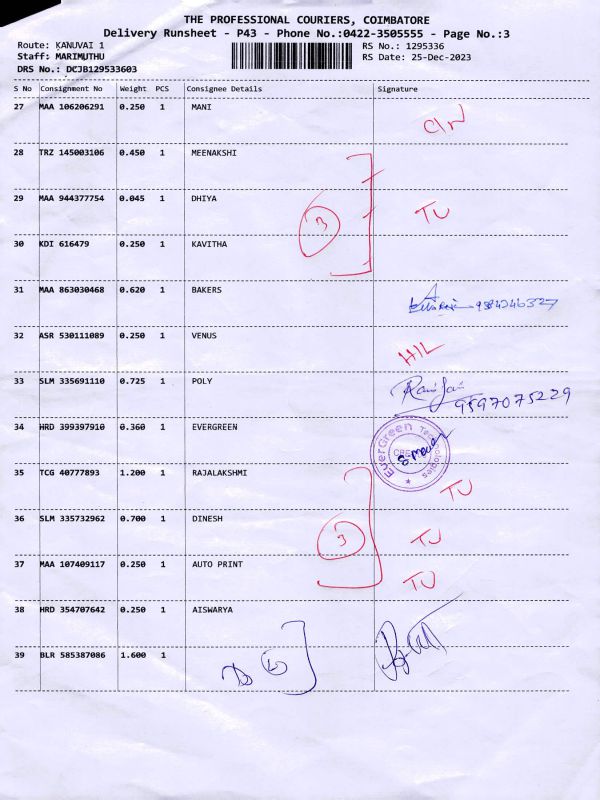 THE PROFESSIONAL COURIERS, COIMBATORE
Delivery Runsheet - P43 - Phone No.:0422-3505555 - Page No.:3
Route: KANUVAI 1 RS No.: 1295336
Staff: MARIMUTHU RS Date: 25-Dec-2023
DRS No.: DCJB129533603
S No Consignment No Weight PCS Consignee Details Signature
27 MAA 106206291 0.250 1 MANI
28 TRZ 145003106 0.450 1 MEENAKSHI
29 MAA 944377754 0.045 1 DHIYA TU
3
30 KDI 616479 0.250 1 KAVITHA
31 MAA 863030468 0.620 1 BAKERS
32 ASR 530111089 0.250 1 VENUS
HIL
33 SLM 335691110 0.725 1 POLY
9597075229
34 HRD 399397910 0.360 1 EVERGREEN
EverGreen Technologies
35 TCG 40777893 1.200 1 RAJALAKSHMI
TU
36 SLM 335732962 0.700 1 DINESH
3 TU
37 MAA 107409117 0.250 1 AUTO PRINT
TU
38 HRD 354707642 0.250 1 AISWARYA
39 BLR 585387086 1.600 1